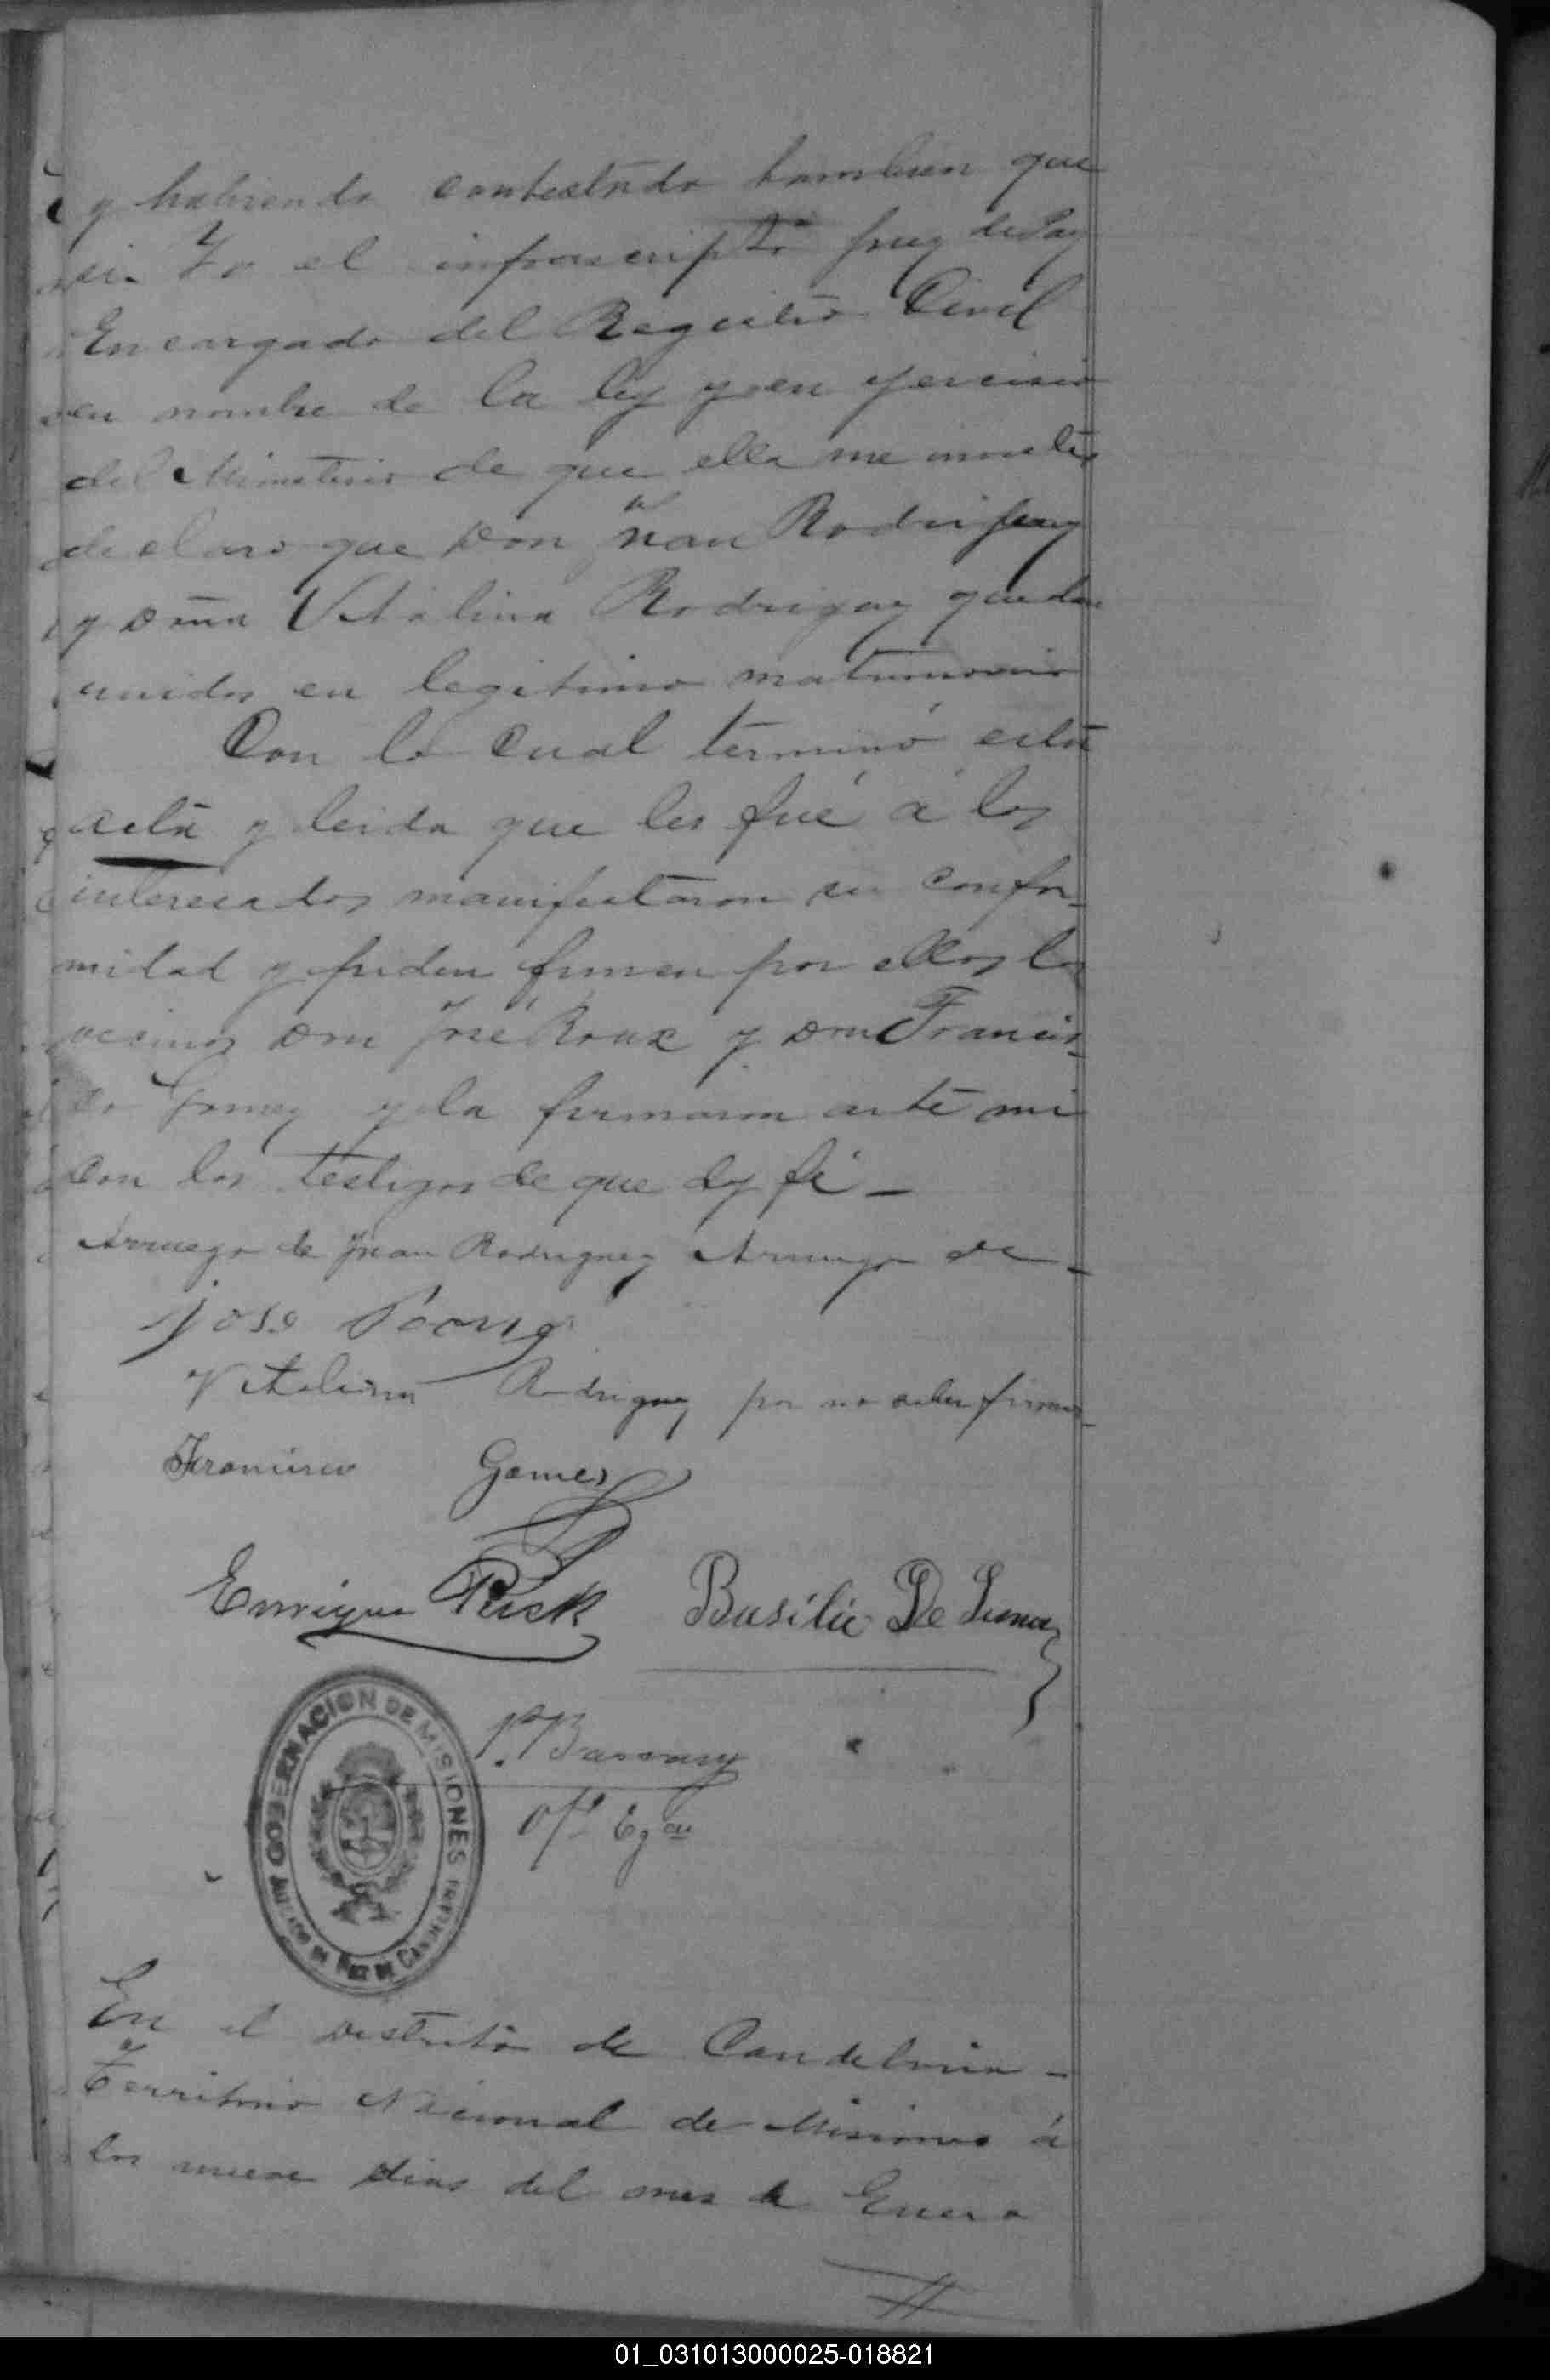 y habiendo contestado tambien que
si. Yo el infrascripto Juez de Paz
Encargado del Registro Civil
en nombre de la ley y en ejercisio
del Ministerio de que ella me inviste
declaro que Don Juan Rodriguez
y Doña Vitalina Rodriguez quedan
unidos en legitimo matrimonio
Con lo cual terminó esta
acta y leida que les fué á los
interesados manifestaron su confor-
midad y piden firmen por ellos los
vecinos Don José Roux y Don Francis-
co Gomez y la firmaron ante mi
con los testigos de que doy fé -
Arruego de Juan Rodriguez Arruego de -
José
Vitalina Rodriguez por no saber firmar
Francisco Gomes
Enrique Basilio De Luna
GOBERNACION DE MISIONES
JUZGADO DE PAZ DE CANDELARIA
En el Distrito de Candelaria -
Territorio Nacional de Misiones á
los nueve dias del mes de Enero
01_031013000025-018821